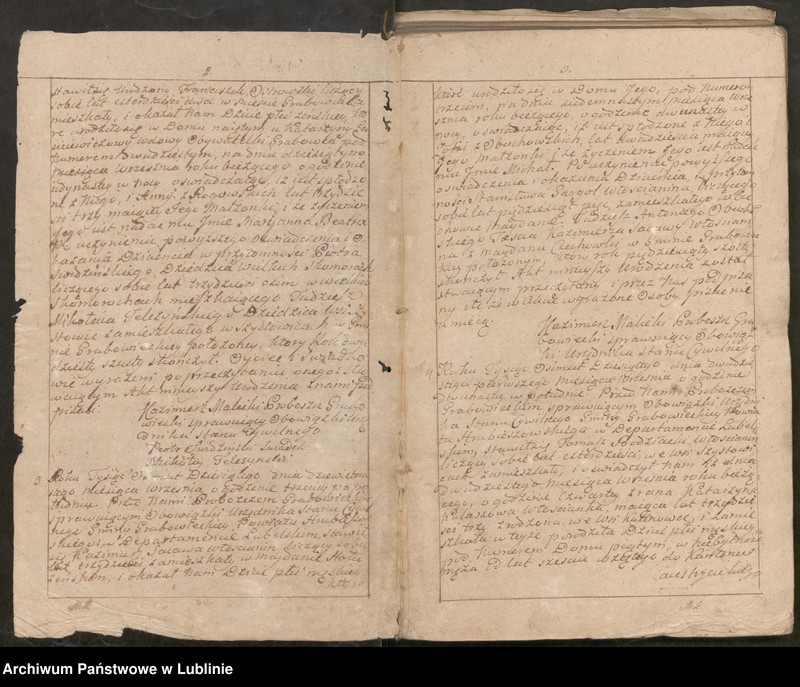 2
stawił się Urodzony Franciszek Ostrowski liczący
sobie lat czterdzieści dwa w mieście Grabowcu za
mieszkały, i okazał Nam Dziecię płci żeńskiey, któ
re urodziło się w Domu
Obywatelki Grabowca pod
Numerem dwudziestym, na dniu dziesiątym
Miesiąca Września roku bieżącego o godzinie
iedynastey w nocy oświadczaiąc, iż iest spłodzo
ne z Niego, i Anny z lat trzydzie
ści trzy maiącey Jego Małżonki, i że życzeniem
Jego iest nadać mu Jmie Maryanna Beatrix
Po uczynieniu powyższego oświadczenia i O
kazania Dziecięcia w przytomności Piotra
Swidzińskiego, Dziedzica Wielkich Skomoroch
liczącego sobie lat trzydzieści osiem w wielkich
Skomorochach mieszkaiącego Tudzież
Mikołaia Telezyńskiego Dziedzica Wsi
zamieszkałego w Szystowicach w Gmi
nie Grabowieckiey położoney, który rok dwu
dziesty szosty skończył. Oyciec i Swiadko
wie wyrażeni po przeczytaniu onego Sta
waiącym Akt ninieyszy Urodzenia z nami pod
pisali.
Kazimierz Malicki Proboszcz Grabo
wiecki sprawuiący Obowiązki Urzę
dnika Stanu Cywilnego
Piotr Swidzinski Swiadek
Mikołay Telezynski
3 Roku Tysiąc Osmset Dziesiątego dnia dziewiętna
stego miesiąca Września o godzinie trzeciey po po
łudniu. Przed Nami Proboszczem Grabowieckim
sprawuiącym Obowiązki Urzędnika Stanu Cywil
nego Gminy Grabowieckiey Powiatu Hrubieszow
skiego w Departamencie Lubelskim Stawił
się Kazimierz Sacawa włościanin liczący sobie
lat trzydzieści zamieszkały w Maydanie
i okazał Nam Dziecię płci męskiey
które
3.
które urodziło się w Domu Jego, pod Numerem
trzecim, na dniu siedemnastym miesiąca Wrze
śnia roku bieżącego, o godzinie dwunastey w
nocy, oświadczaiąc, iż iest spłodzone z Niego i
Zofii z Obuchowskich, lat dwadzieścia maiącey
Jego Małżonki i że życzeniem Jego iest nadać
mu Jmie Michał. Po uczynieniu powyższego
oświadczenia i okazania Dziecięcia w przytom
ności Stanisława Gargol włościanina, liczącego
sobie lat pięćdziesiąt pięć, zamieszkałego w Cie
chowie Maydanie Tudzież Antoniego Obuch
skiego Tescia Kazimierza Sacawy włościani
na z Maydanu Ciechowa w Gminie Grabowie
ckiey położonym, który rok pięćdziesiąty szosty
skończył. Akt ninieyszy Urodzenia został
stawaiącym przeczytany i przez Nas podpisa
ny Gdyż w Akcie wyrażone Osoby pisać nie
umieią.
Kazimierz Malicki Proboszcz Gra
bowiecki sprawuiący Obowiąz
ki Urzędnika Stanu Cywilnego
4 Roku Tysiąc Osmset Dziesiątego dnia dwudzie
stego pierwszego miesiąca Września o godzinie
dwunastey w południe. Przed Nami Proboszczem
Grabowieckim sprawuiącym Obowiązki Urzędni
ka Stanu Cywilnego Gminy Grabowieckiey Powia
tu Hrubieszowskiego w Departamencie Lubel
skim, stawił się Tomasz włościanin
liczący sobie lat czterdzieści, we wsi Szystowi
cach zamieszkały, i oświadczył Nam iż dnia
dwudziestego Miesiąca Września roku bieżą
cego, o godzinie czwartey z rana Katarzyna
włościanka, maiąca lat trzydzie
ści trzy zrodzona we wsi i zamie
szkała w teyże, porodziła Dziecię płci męskiey
pod Numerem Domu piątym, w niebytności
męża od lat sześciu wziętego do Kantonu
austryackiego
Archiwum Państwowe w Lublinie